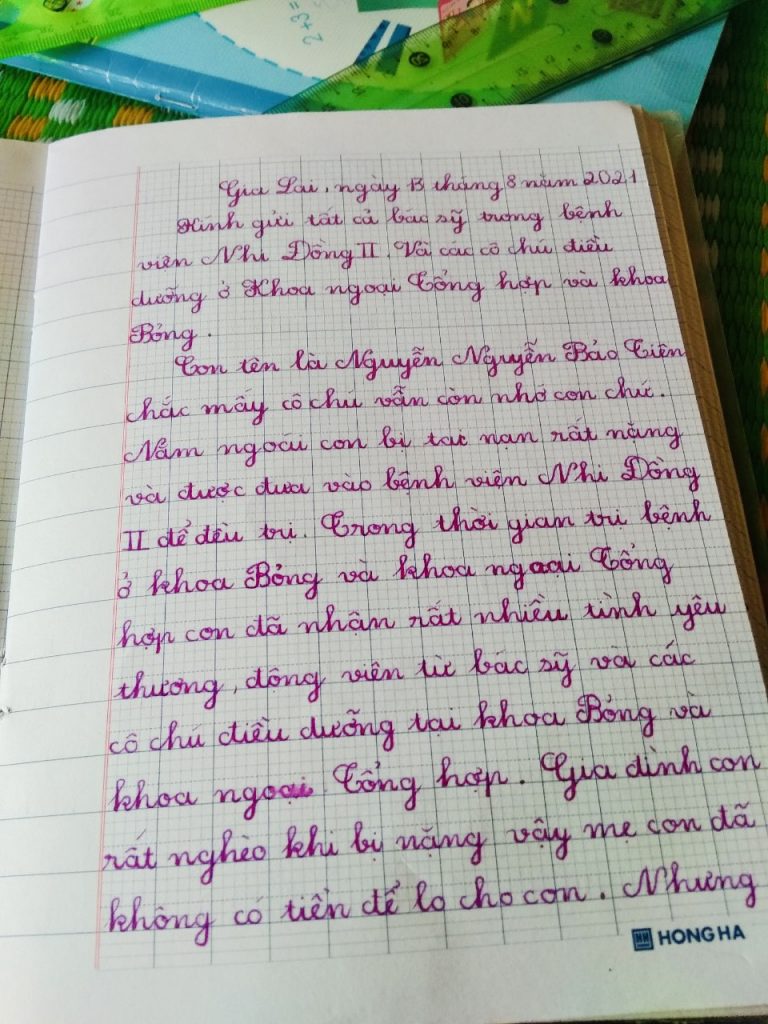 2+3=
Gia Lai, ngày 13 tháng 8 năm 2021
Kính gửi tất cả bác sỹ trong bệnh
viên Nhi Đồng II. Và các cô chú điều
dưỡng ở Khoa ngoại Tổng hợp và khoa
Bỏng.
Con tên là Nguyễn Nguyễn Bảo Tiên
chắc mấy cô chú vẫn còn nhớ con chứ.
Năm ngoái con bị tai nạn rất nặng
và được đưa vào bệnh viện Nhi Đồng
II để đều trị. Trong thời gian trị bệnh
ở khoa Bỏng và khoa ngoại Tổng
hợp con đã nhận rất nhiều tình yêu
thương, động viên từ bác sỹ và các
cô chú điều dưỡng tại khoa Bỏng và
khoa ngoại Tổng hợp. Gia đình con
rất nghèo khi bị nặng vậy mẹ con đã
không có tiền để lo cho con. Nhưng
HONG HA